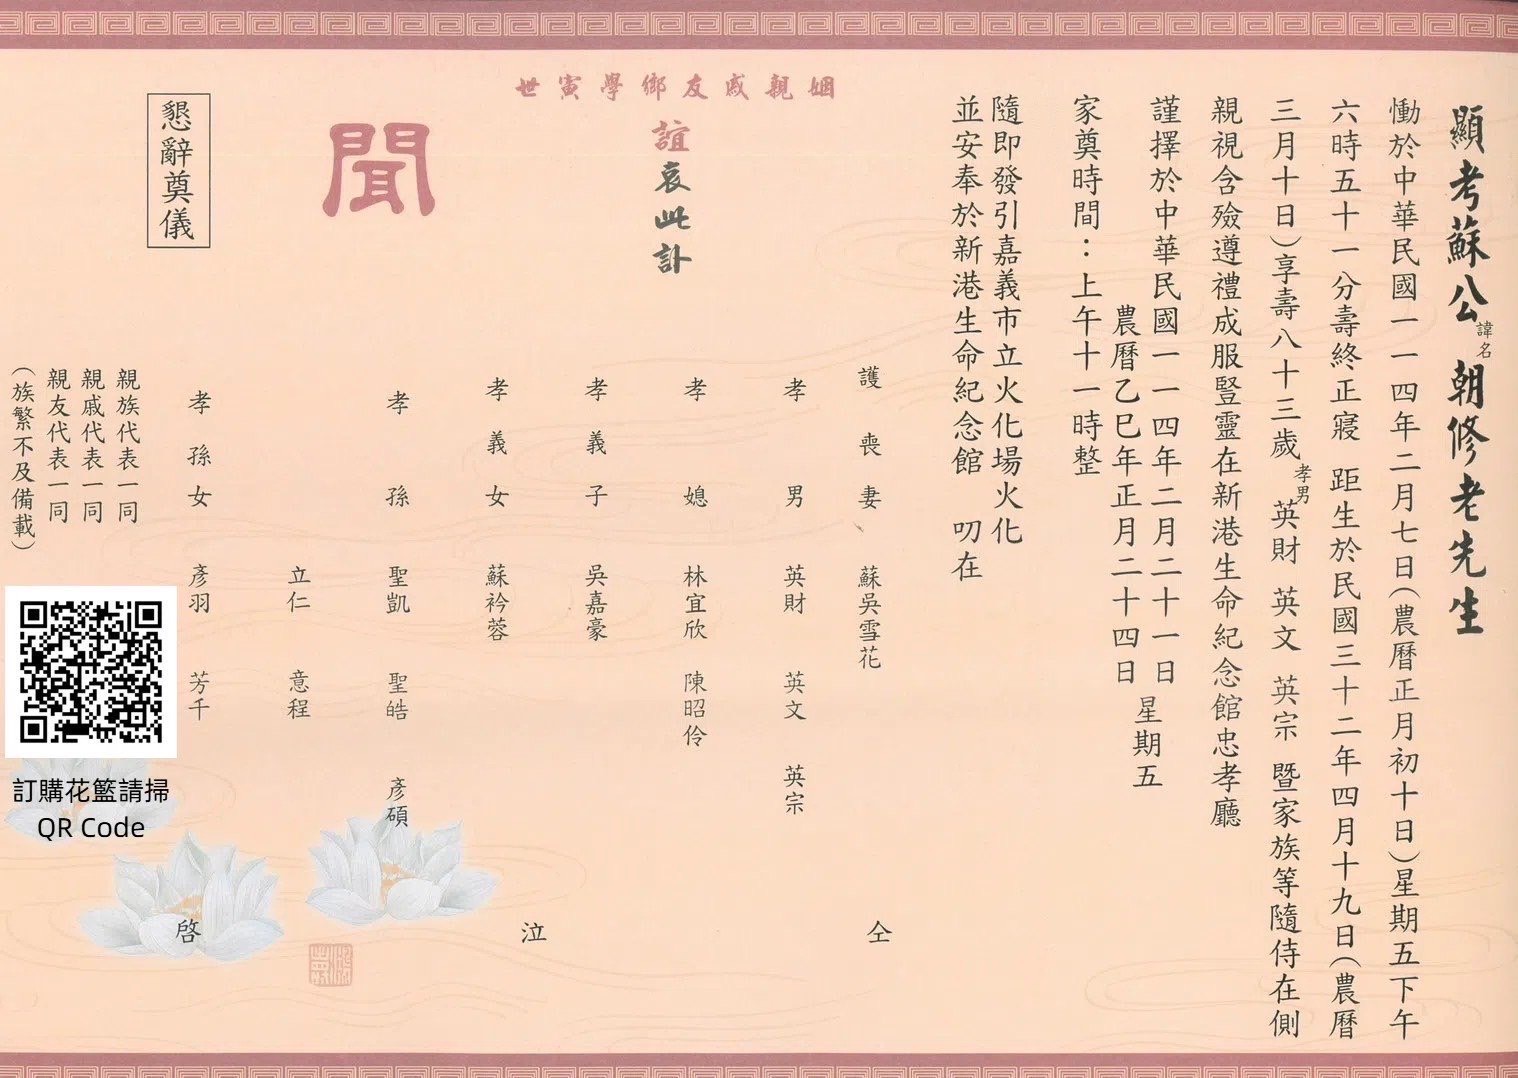 顯考蘇公諱名朝修老先生
慟於中華民國一一四年二月七日(農曆正月初十日)星期五下午
六時五十一分壽終正寢 距生於民國三十二年四月十九日(農曆
三月十日)享壽八十三歲 孝男 英財 英文 英宗 暨家族等隨侍在側
親視含殮遵禮成服豎靈在新港生命紀念館忠孝廳
謹擇於中華民國一一四年二月二十一日
農曆乙巳年正月二十四日
星期五
家奠時間：上午十一時整
隨即發引嘉義市立火化場火化
並安奉於新港生命紀念館 叨在
姻親戚友鄉學寅世
誼哀此訃
聞
懇辭奠儀
護喪妻 蘇吳雪花
孝男 英財 英文 英宗
孝媳 林宜欣 陳昭伶
孝義子 吳嘉豪
孝義女 蘇衿蓉
孝孫 聖凱 聖皓 彥碩
立仁 意程
孝孫女 彥羽 芳千
親族代表一同
親戚代表一同
親友代表一同
(族繁不及備載)
仝 泣 啓
訂購花籃請掃
QR Code